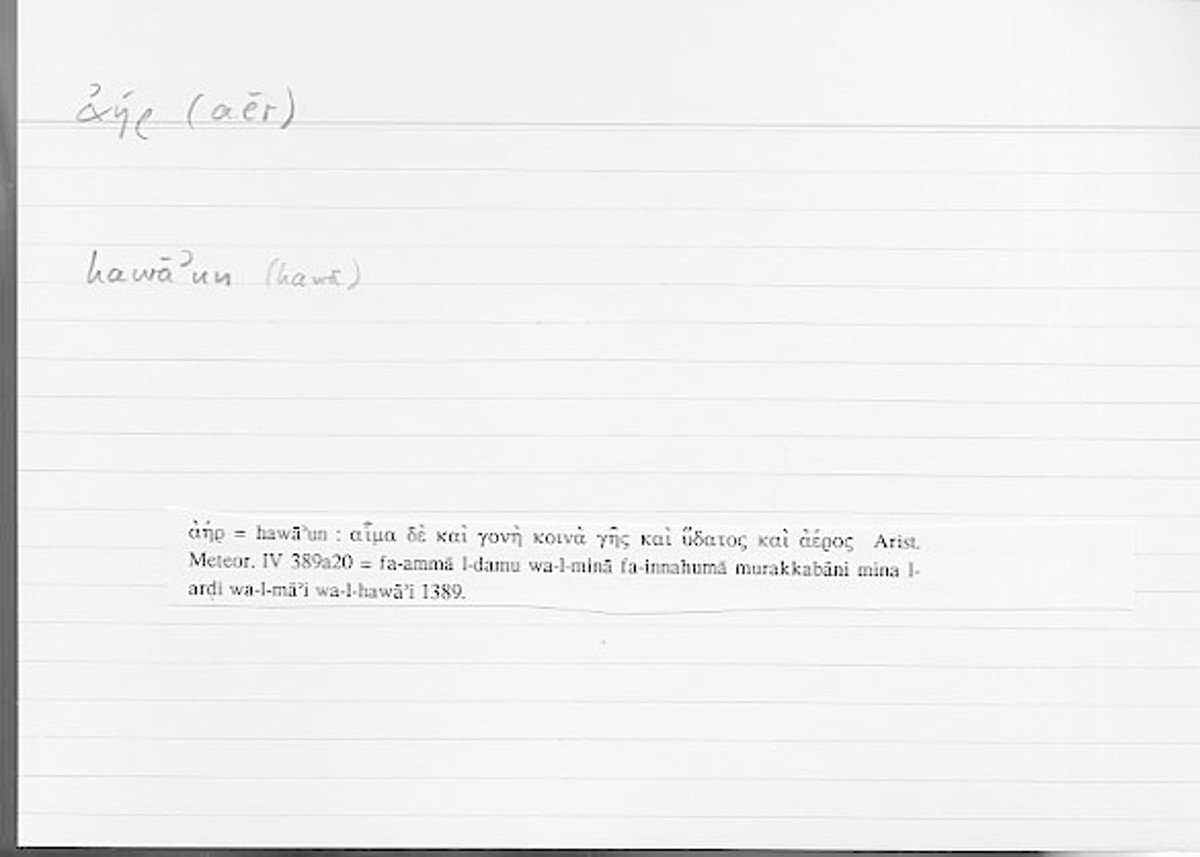 ἀήρ (aēr)
hawāʾun (hawā)
ἀήρ = hawāʾun : αἷμα δὲ καὶ γονὴ κοινὰ γῆς καὶ ὕδατος καὶ ἀέρος Arist.
Meteor. IV 389a20 = fa-ammā l-damu wa-l-minā fa-innahumā murakkabāni mina l-
arḍi wa-l-māʾi wa-l-hawāʾi 1389.